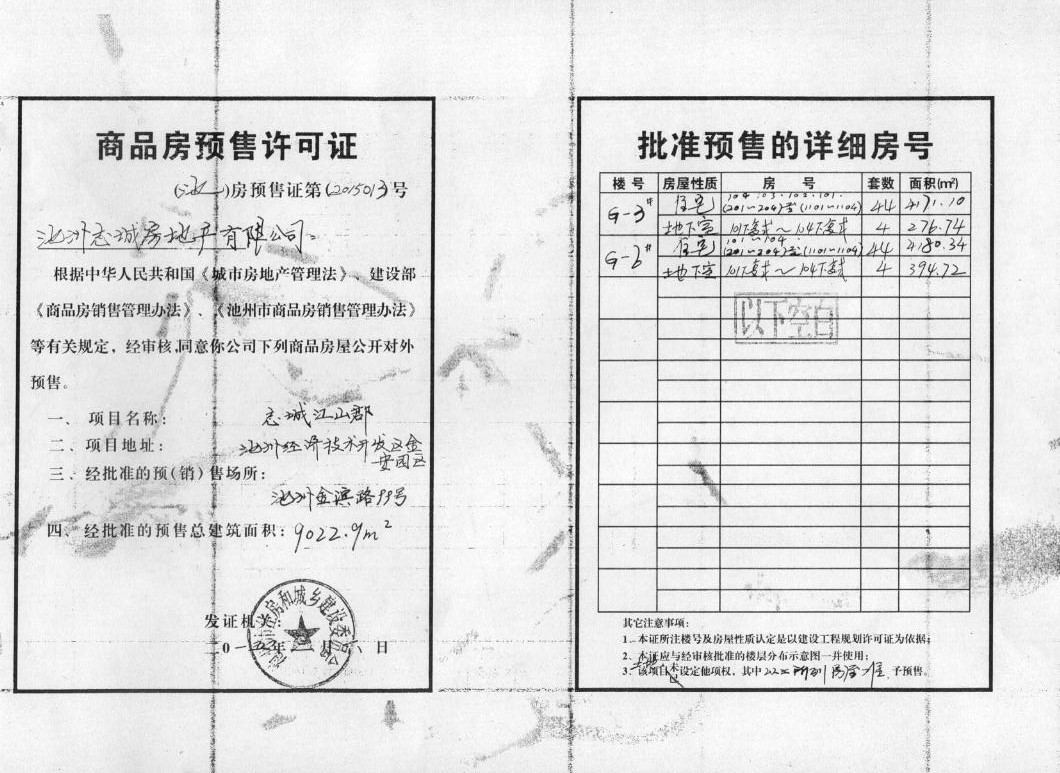 商品房预售许可证
(池)房预售证第(2015013)号
池州志城房地产有限公司：
根据中华人民共和国《城市房地产管理法》、建设部
《商品房销售管理办法》、《池州市商品房销售管理办法》
等有关规定，经审核，同意你公司下列商品房屋公开对外
预售。
一、项目名称：志城江山郡
二、项目地址：池州经济技术开发区金
安园区
三、经批准的预(销)售场所：
池州金滨路99号
四、经批准的预售总建筑面积：9022.9m²
发证机关
批准预售的详细房号
楼号 房屋性质 房号 套数 面积(m²)
104.103.102.101.
G-3# 住宅 (201~204)至(1101~1104) 44 4171.10
地下室 101下套式~104下套式 4 276.74
101~104
G-6# 住宅 (201~204)至(1101~1104) 44 4180.34
地下室 101下套式~104下套式 4 394.72
以下空白
其它注意事项：
1、本证所注楼号及房屋性质认定是以建设工程规划许可证为依据；
2、本证应与经审核批准的楼层分布示意图一并使用；
3、该项目未设定他项权，其中 予预售。